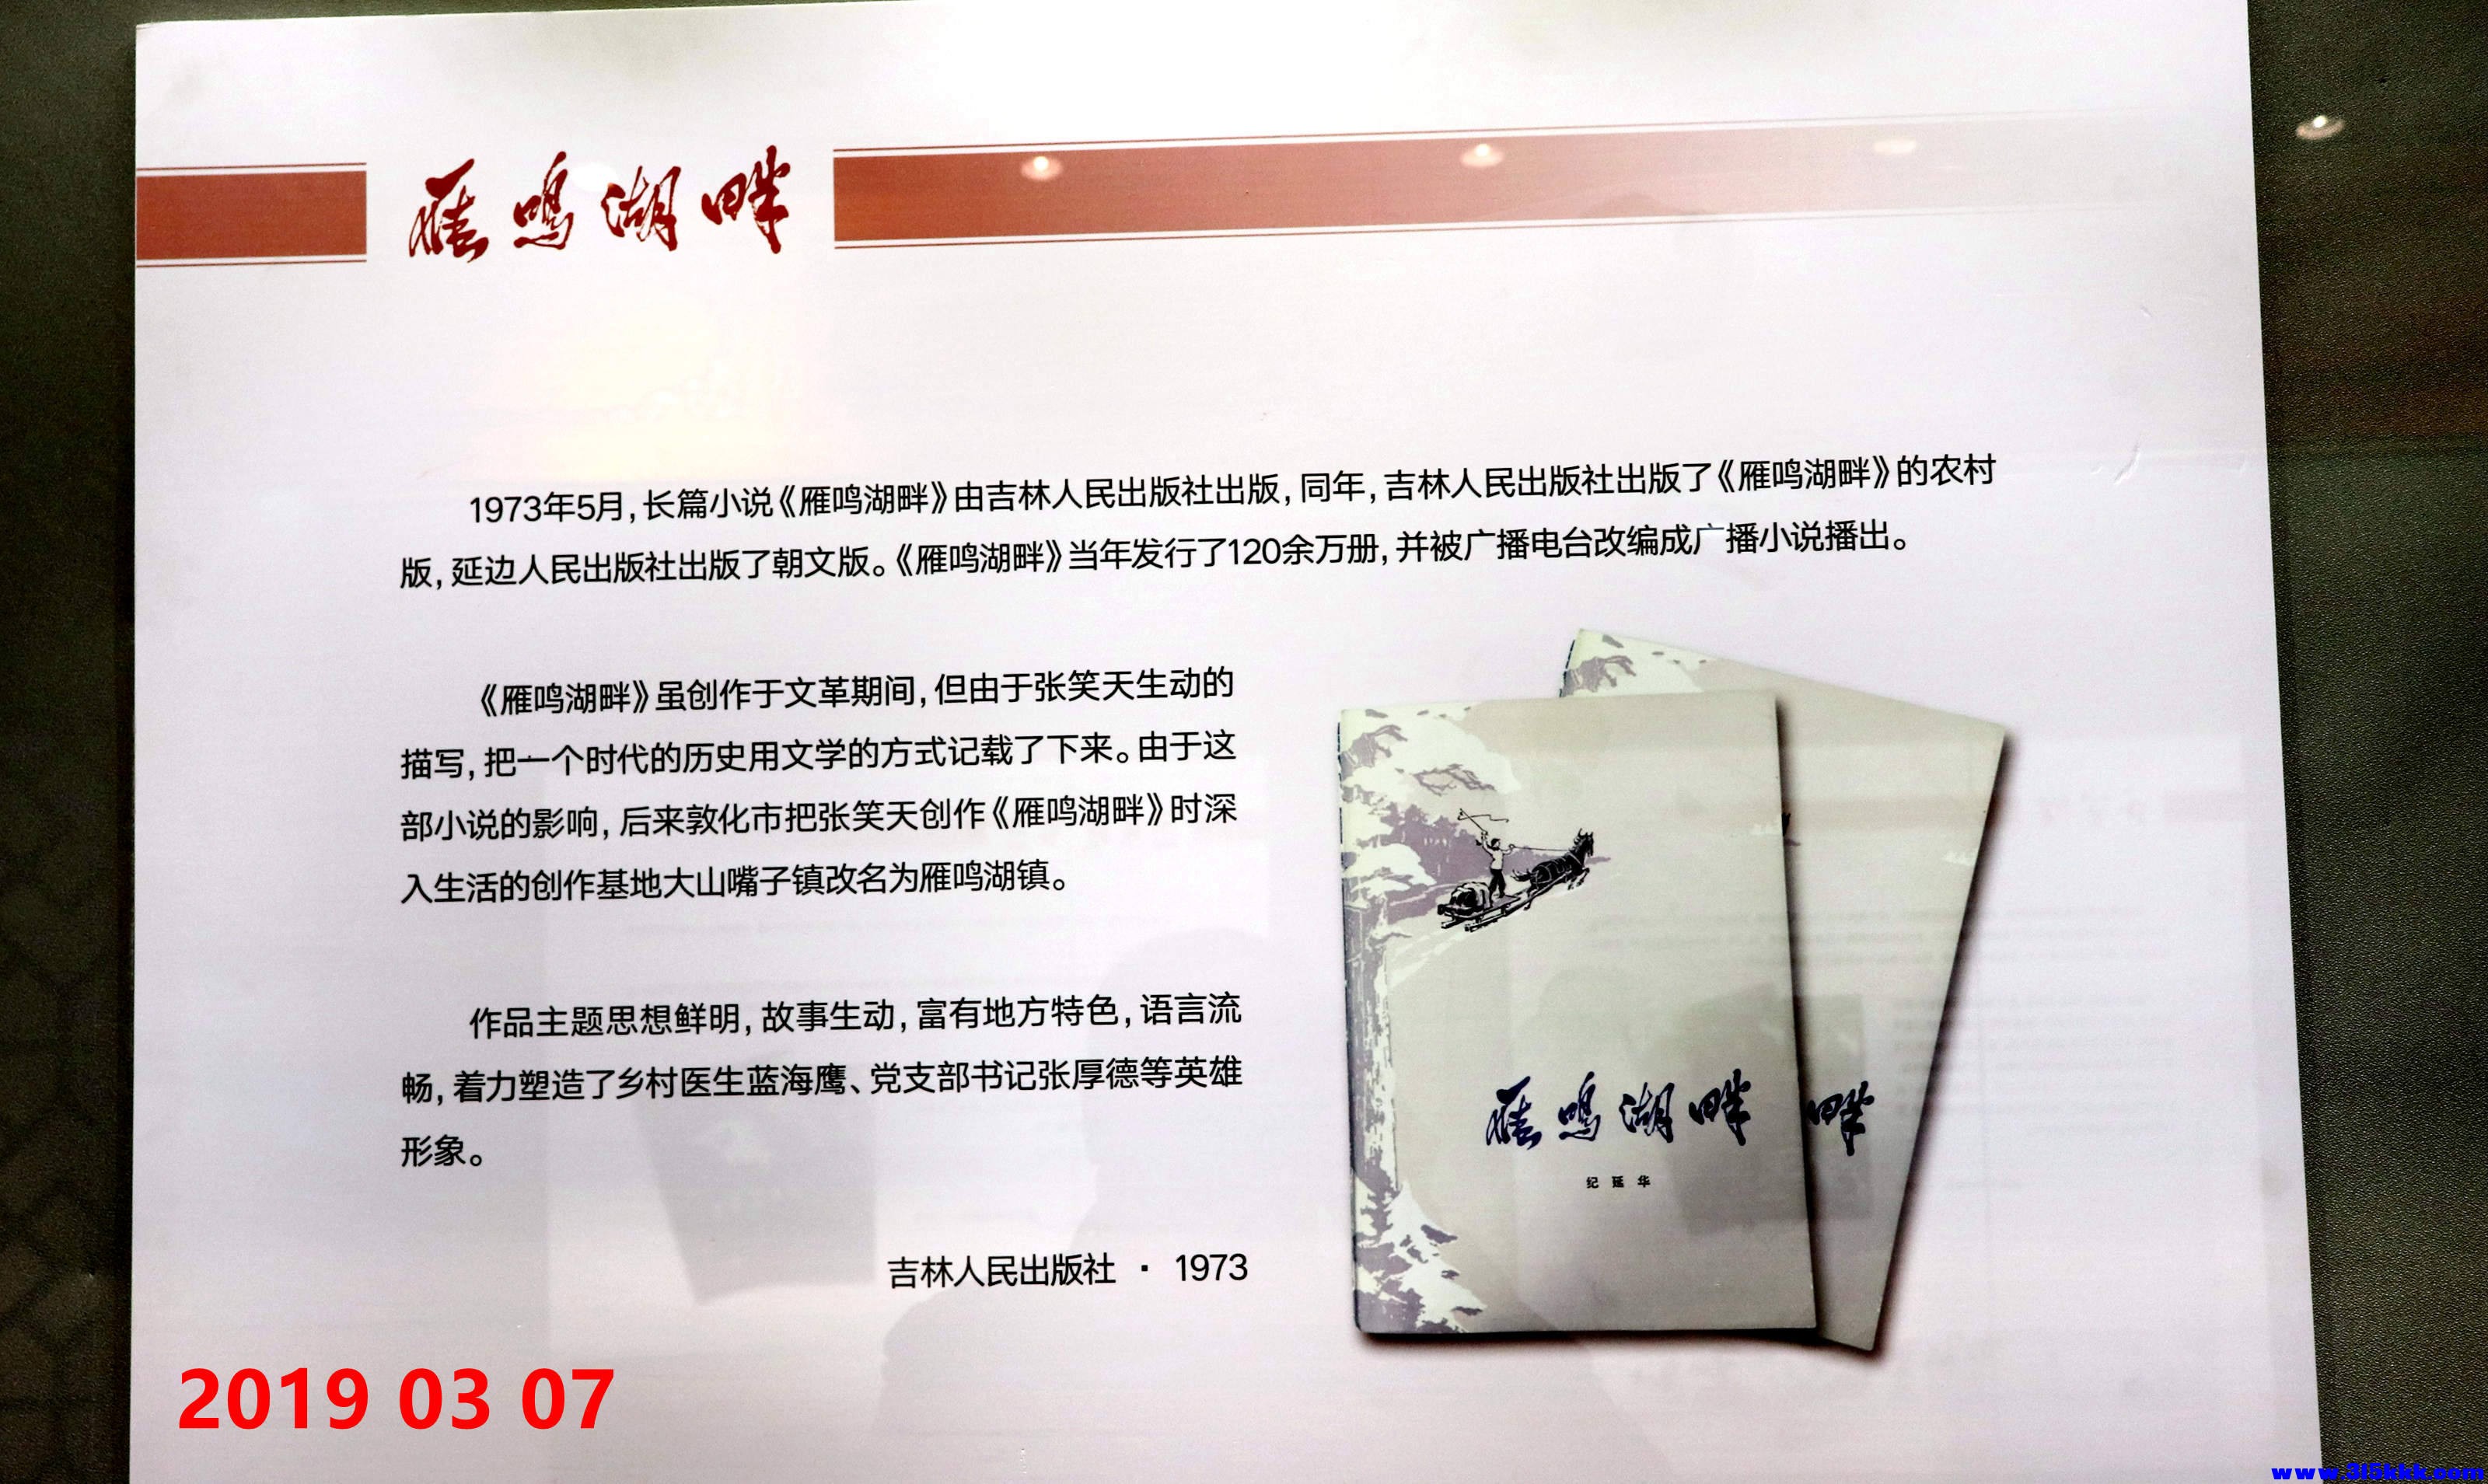 雁鸣湖畔
1973年5月,长篇小说《雁鸣湖畔》由吉林人民出版社出版,同年,吉林人民出版社出版了《雁鸣湖畔》的农村
版,延边人民出版社出版了朝文版。《雁鸣湖畔》当年发行了120余万册,并被广播电台改编成广播小说播出。
《雁鸣湖畔》虽创作于文革期间,但由于张笑天生动的
描写,把一个时代的历史用文学的方式记载了下来。由于这
部小说的影响,后来敦化市把张笑天创作《雁鸣湖畔》时深
入生活的创作基地大山嘴子镇改名为雁鸣湖镇。
作品主题思想鲜明,故事生动,富有地方特色,语言流
畅,着力塑造了乡村医生蓝海鹰、党支部书记张厚德等英雄
形象。
吉林人民出版社 · 1973
雁鸣湖畔
畔
纪延华
2019 03 07
www.315kkk.com